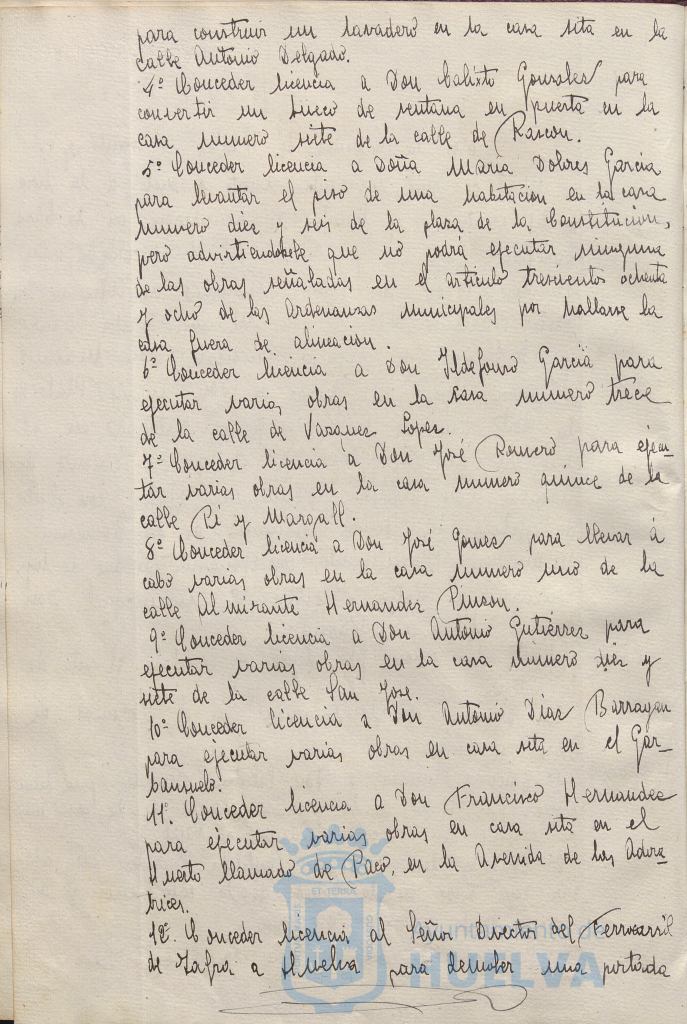 para construir un lavadero en la casa sita en la
calle Antonio Delgado.
4º Conceder licencia a Don Calixto Gonzalez para
convertir un hueco de ventana en puerta en la
casa numero siete de la calle de Rascon.
5º Conceder licencia a Doña Maria Dolores Garcia
para levantar el piso de una habitacion en la casa
numero diez y seis de la plaza de la Constitucion,
pero advirtiendosele que no podrá ejecutar ninguna
de las obras señaladas en el articulo trescientos ochenta
y ocho de las Ordenanzas municipales por hallarse la
casa fuera de alineacion.
6º Conceder licencia a Don Ildefonso Garcia para
ejecutar varias obras en la casa numero trece
de la calle de Vazquez Lopez.
7º Conceder licencia a Don José Romero para ejecu-
tar varias obras en la casa numero quince de la
calle Pi y Margall.
8º Conceder licencia a Don José Gomez para llevar á
cabo varias obras en la casa numero uno de la
calle Almirante Hernandez Pinzon.
9º Conceder licencia a Don Antonio Gutiérrez para
ejecutar varias obras en la casa numero diez y
siete de la calle San José.
10º Conceder licencia a Don Antonio Diaz Barragan
para ejecutar varias obras en casa sita en el Gar-
banzuelo.
11º. Conceder licencia a Don Francisco Hernandez
para ejecutar varias obras en casa sita en el
Huerto llamado de Paco, en la Avenida de las Adora-
trices.
12º. Conceder licencia al Señor Director del Ferrocarril
de Zafra a Huelva para demoler una portada
Ayuntamiento de
HUELVA
ET TERRA